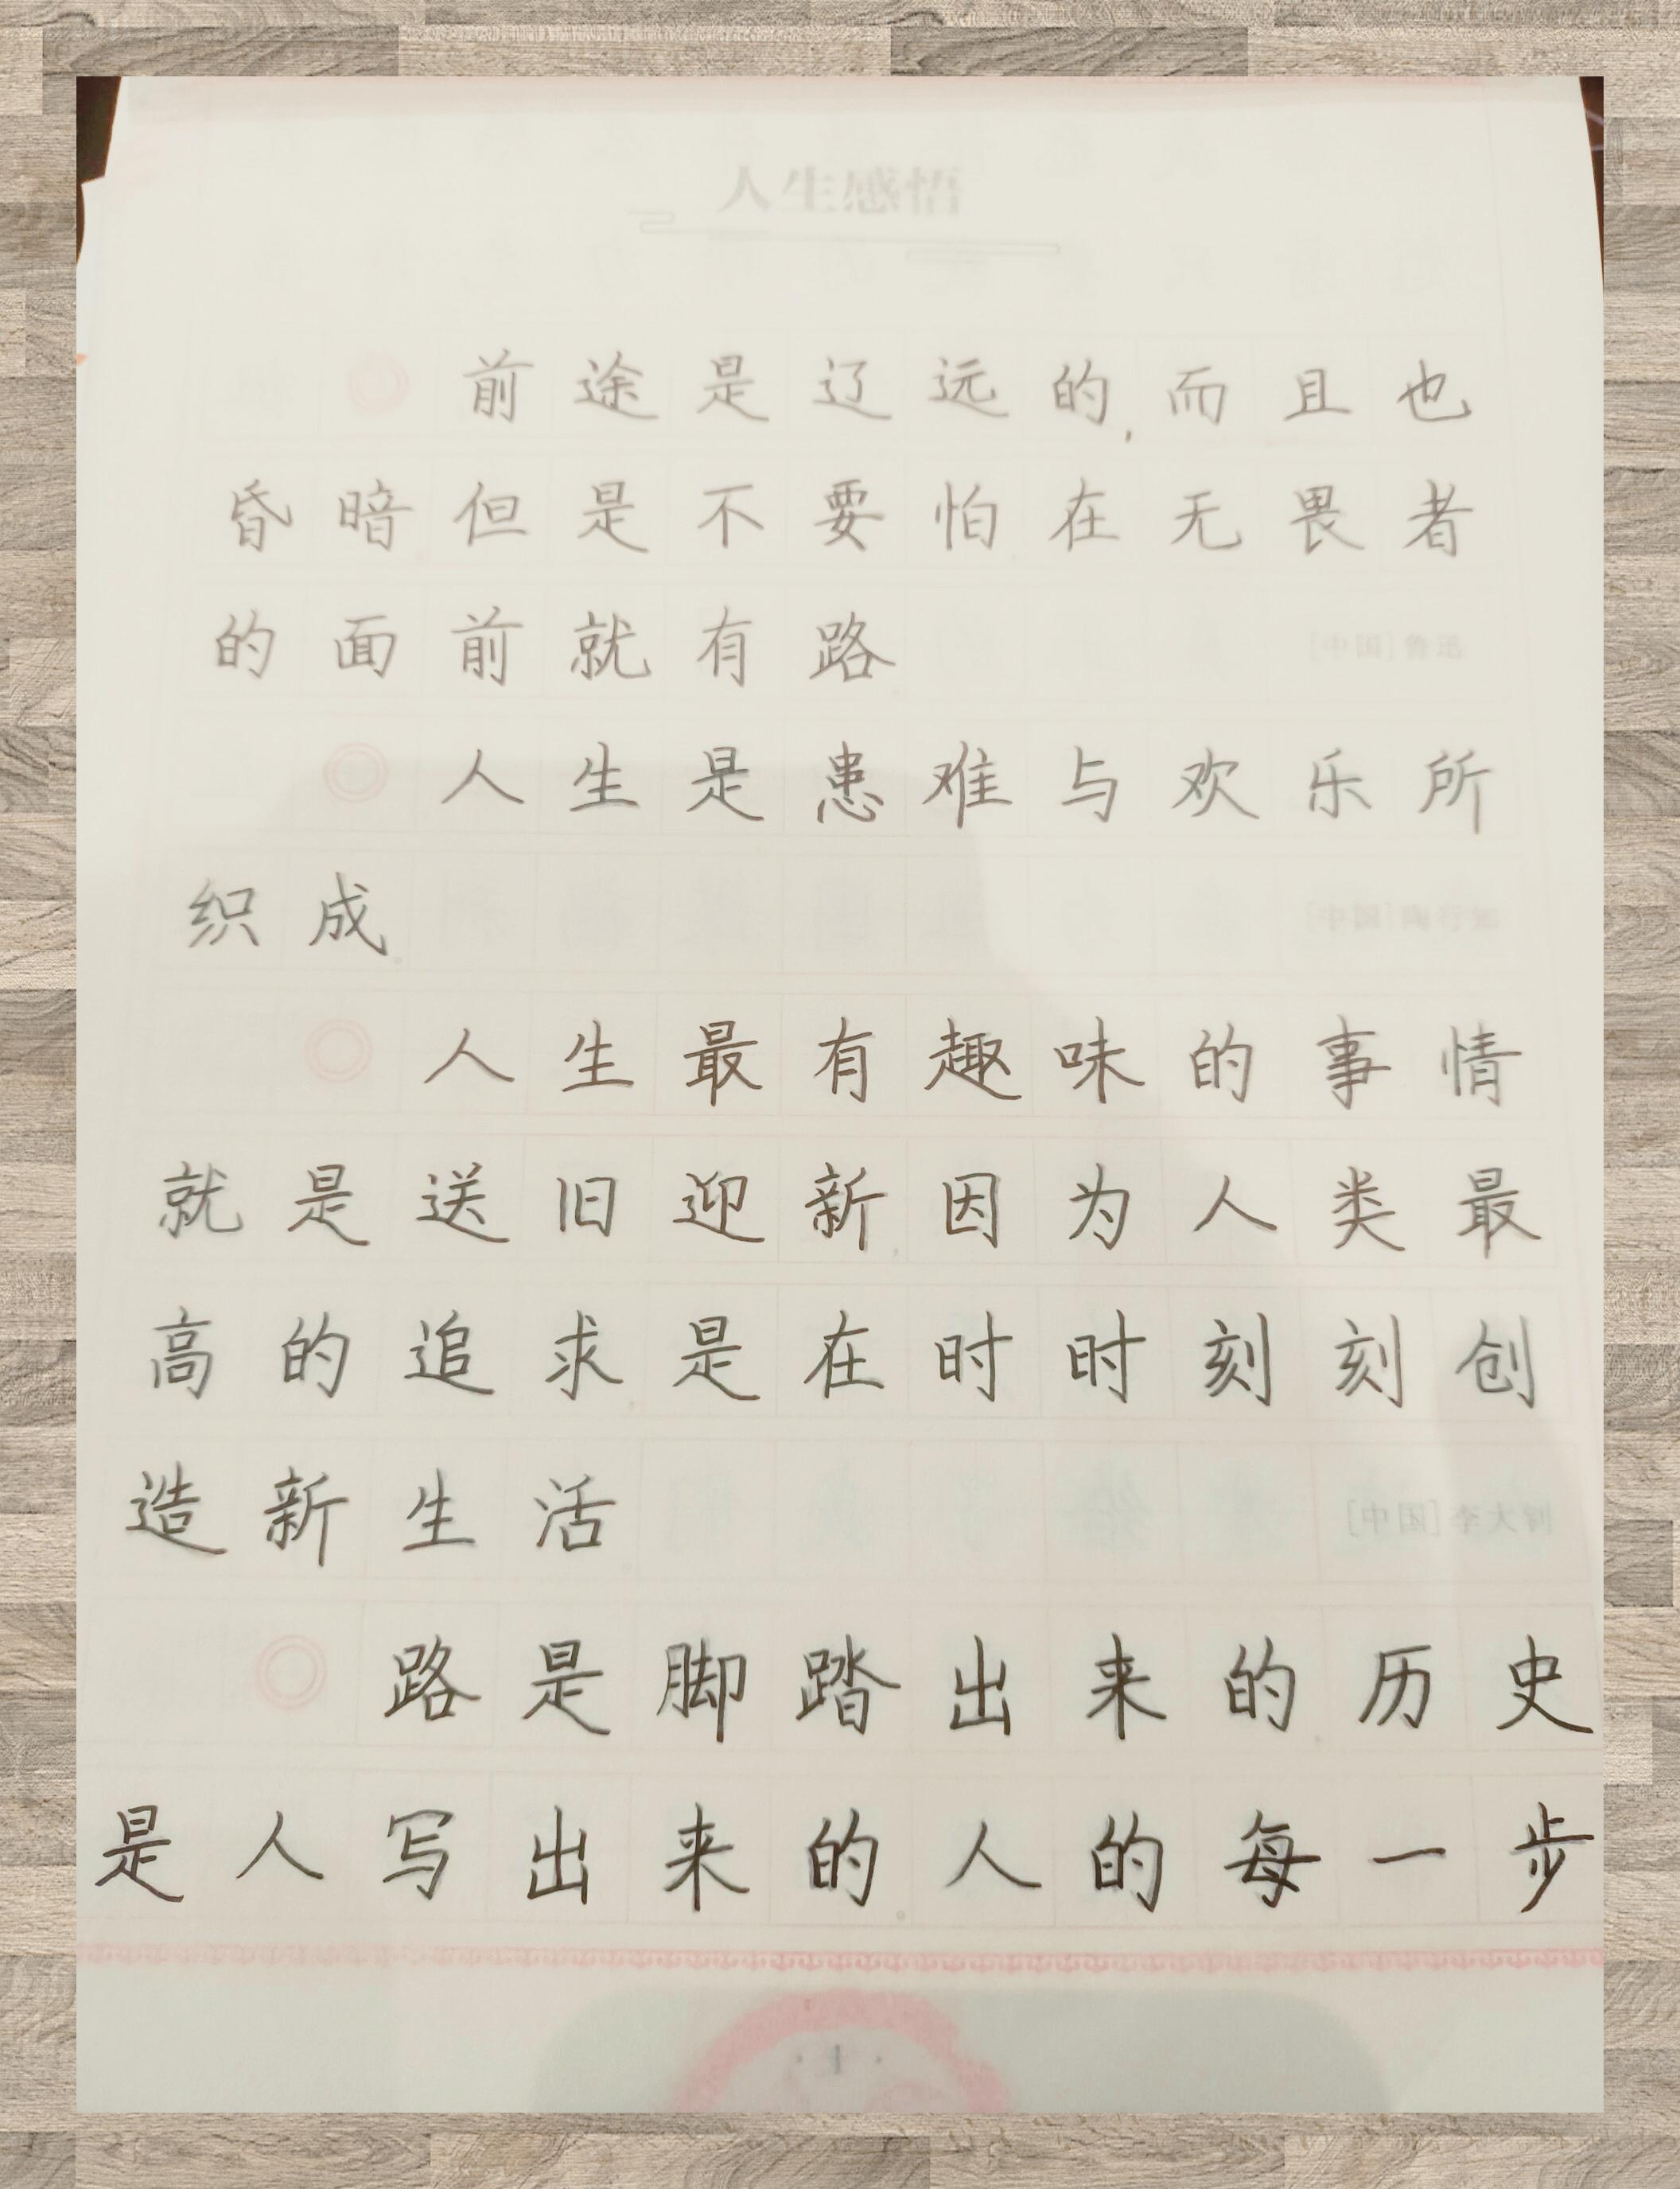 人生感悟
前途是辽远的,而且也
昏暗但是不要怕在无畏者
的面前就有路
[中国]鲁迅
人生是患难与欢乐所
织成
[中国]陶行知
人生最有趣味的事情
就是送旧迎新因为人类最
高的追求是在时时刻刻创
造新生活
[中国]李大钊
路是脚踏出来的历史
是人写出来的人的每一步